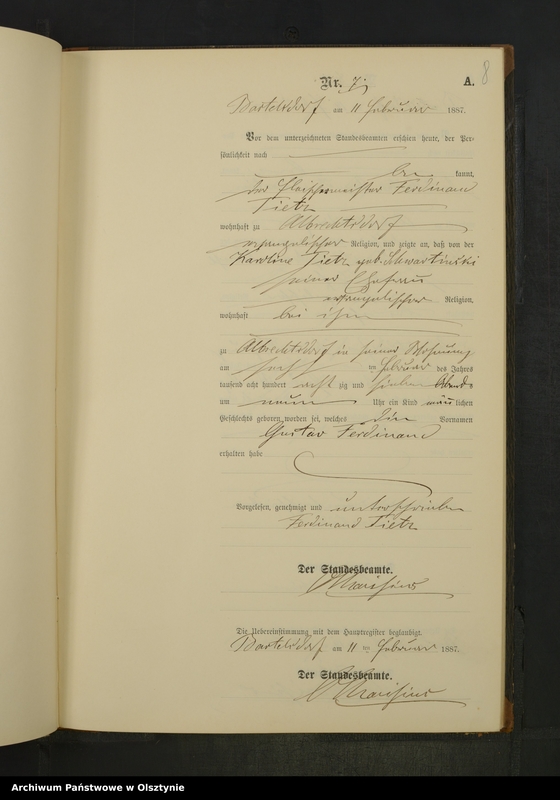 8
Nr. 7.
A.
Bartelsdorf am 11 Februar 1887.
Vor dem unterzeichneten Standesbeamten erschien heute, der Per-
sönlichkeit nach
be kannt,
der Fleischermeister Ferdinand
Tietz
wohnhaft zu Albrechtsdorf
evangelischer Religion, und zeigte an, daß von der
Karoline Tietz geb.
seiner Ehefrau
evangelischer Religion,
wohnhaft bei ihm
zu Albrechtsdorf in seiner Wohnung
am Februar des Jahres
tausend acht hundert acht zig und sieben Abends
um neun Uhr ein Kind männ lichen
Geschlechts geboren worden sei, welches die Vornamen
Gustav Ferdinand
erhalten habe
Vorgelesen, genehmigt und unterschrieben
Ferdinand Tietz
Der Standesbeamte.
Die Uebereinstimmung mit dem Hauptregister beglaubigt.
Bartelsdorf am 11 ten Februar 1887.
Der Standesbeamte.
Archiwum Państwowe w Olsztynie